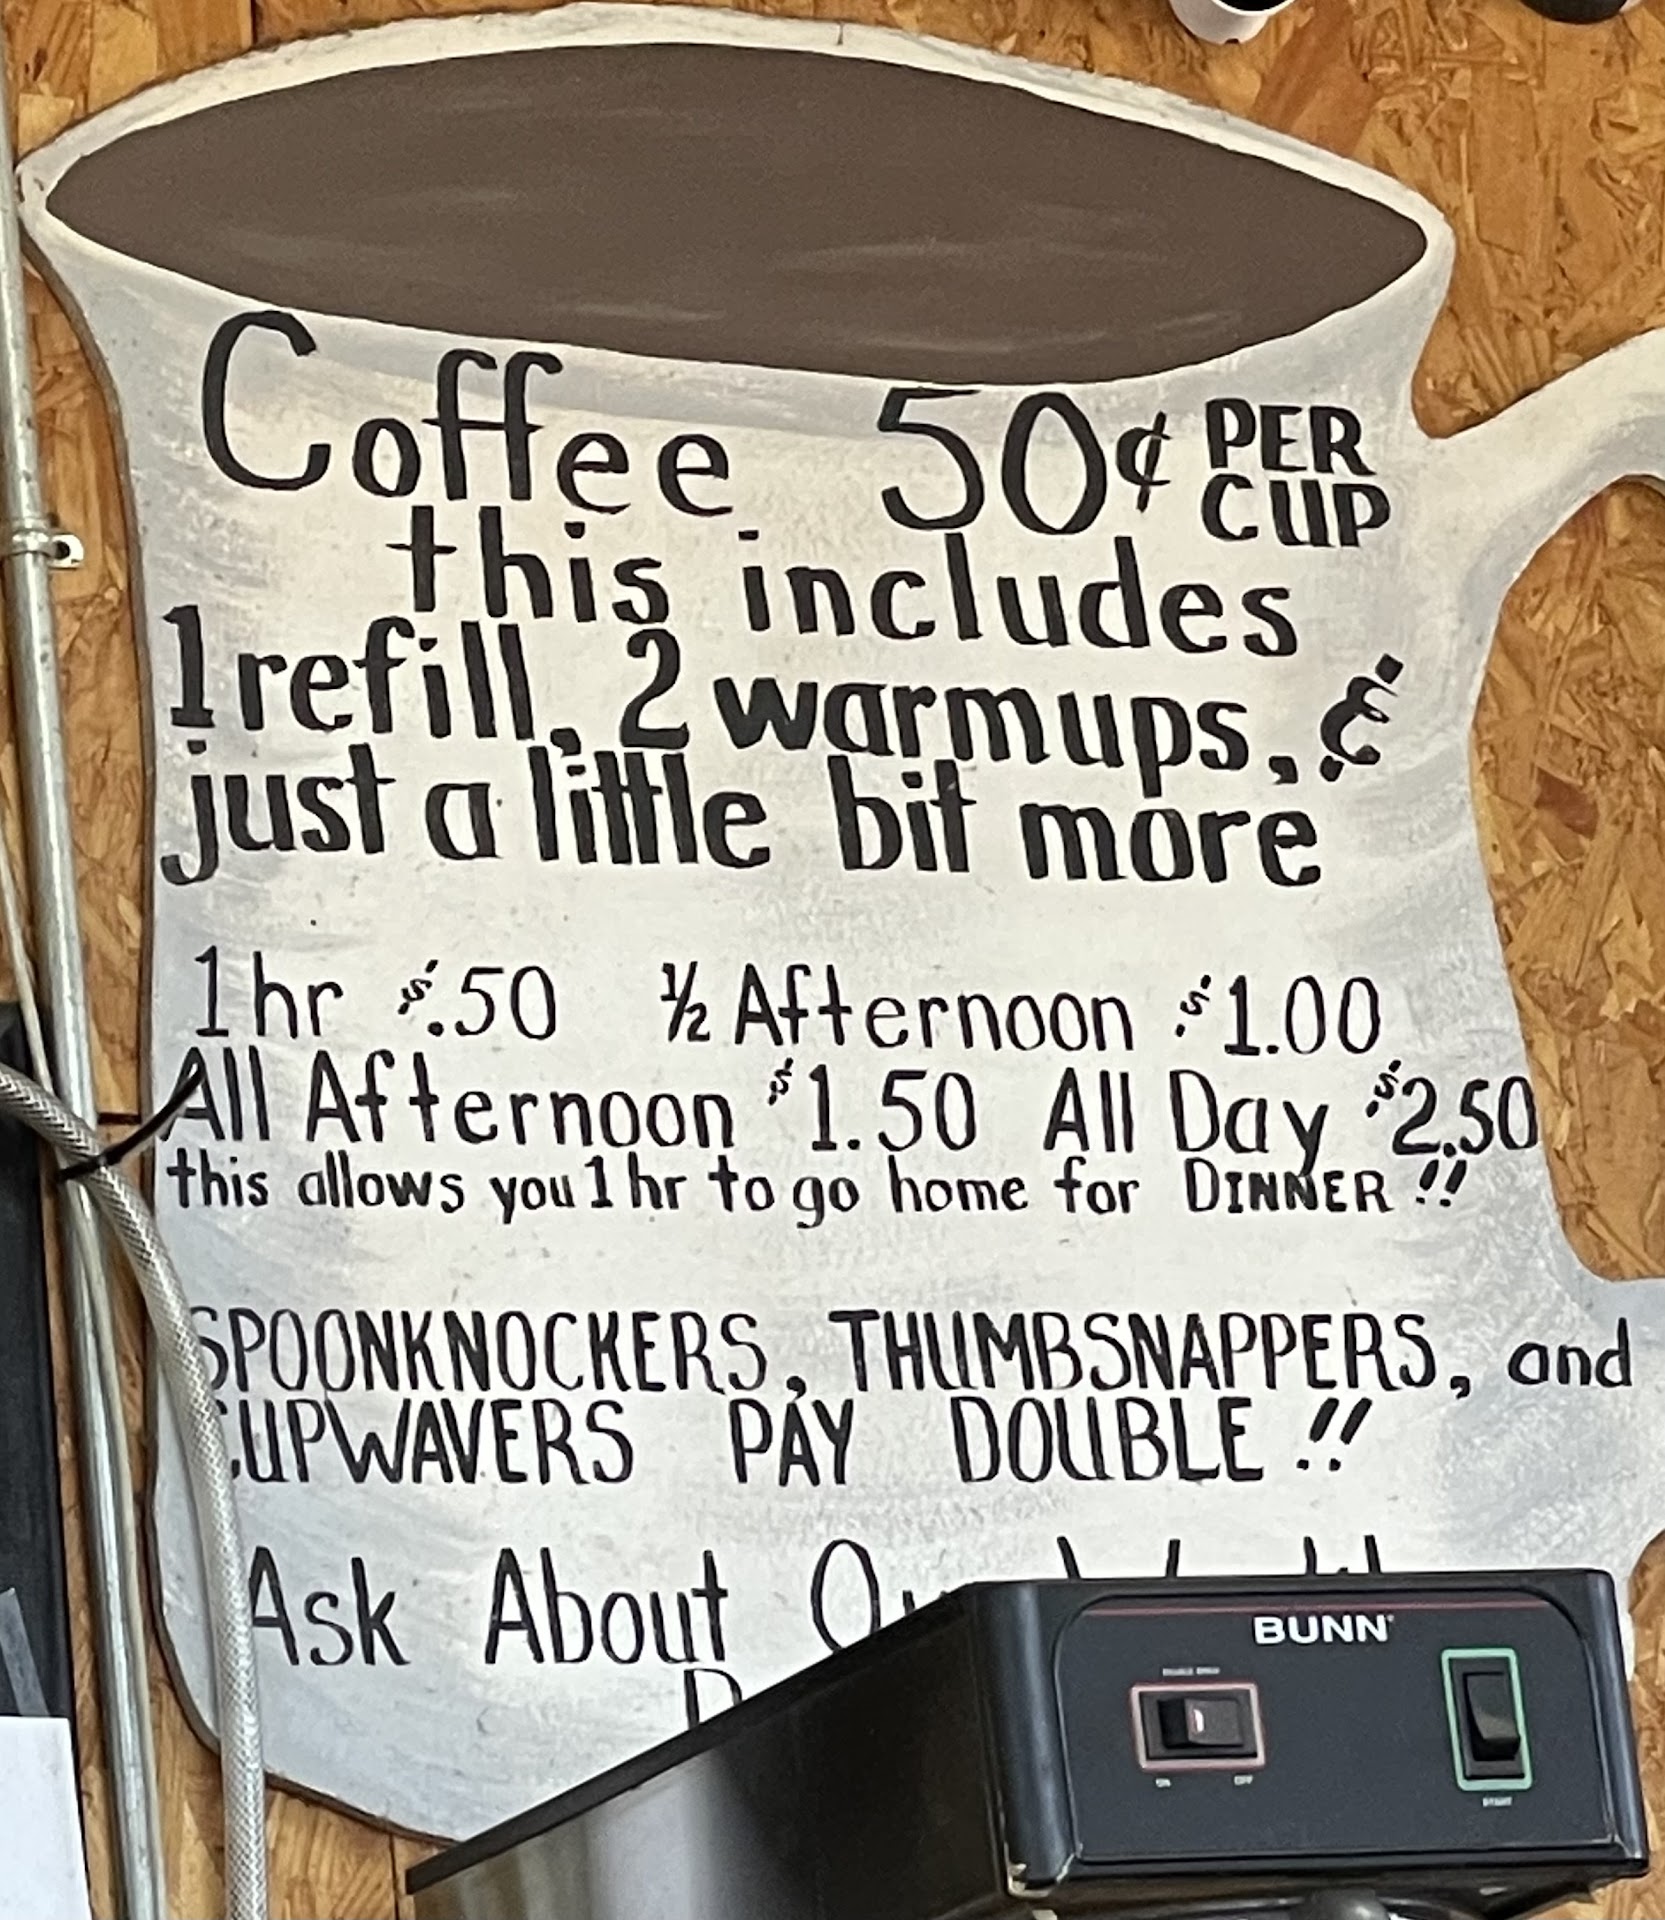 Coffee 50¢ PER CUP
this includes
1 refill, 2 warmups, &
just a little bit more
1 hr $.50 ½ Afternoon $1.00
All Afternoon $1.50 All Day $2.50
this allows you 1 hr to go home for DINNER!!
SPOONKNOCKERS, THUMBSNAPPERS, and
CUPWAVERS PAY DOUBLE!!
Ask About
BUNN
ON OFF
START